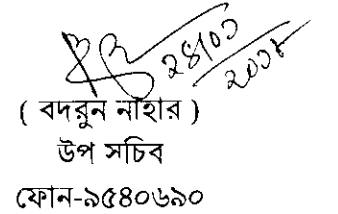 ২৪/০১
২০১৮
( বদরুন নাহার )
উপ সচিব
ফোন-৯৫৪০৬৯০